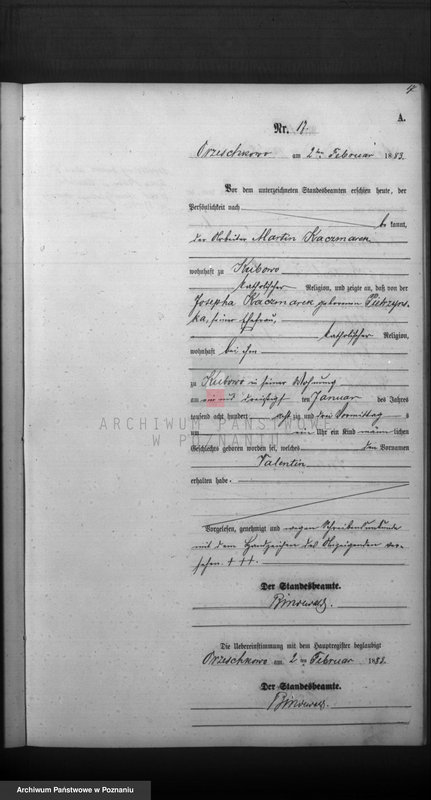 A.
Nr. 17.
Orzeschkowo am 2ten Februar 1883.
Vor dem unterzeichneten Standesbeamten erschien heute, der
Persönlichkeit nach
be kannt,
der Arbeiter Martin Kaczmarek
wohnhaft zu Kubowo
katholischer Religion, und zeigte an, daß von der
Josepha Kaczmarek geborenen
ka, seiner Ehefrau,
katholischer Religion,
wohnhaft bei ihm
zu Kubowo in seiner Wohnung
am ein und dreißigsten Januar des Jahres
tausend acht hundert acht zig und drei Vormittag s
um ein Uhr ein Kind männ lichen
Geschlechts geboren worden sei, welches den Vornamen
Valentin
erhalten habe.
Vorgelesen, genehmigt und wegen Schreibensunkunde
mit dem Handzeichen des Anzeigenden ver-
sehen + + +.
Der Standesbeamte.
Die Uebereinstimmung mit dem Hauptregister beglaubigt
Orzeschkowo am 2 ten Februar 1883.
Der Standesbeamte.
ARCHIWUM PAŃSTWOWE
W POZNANIU
Archiwum Państwowe w Poznaniu